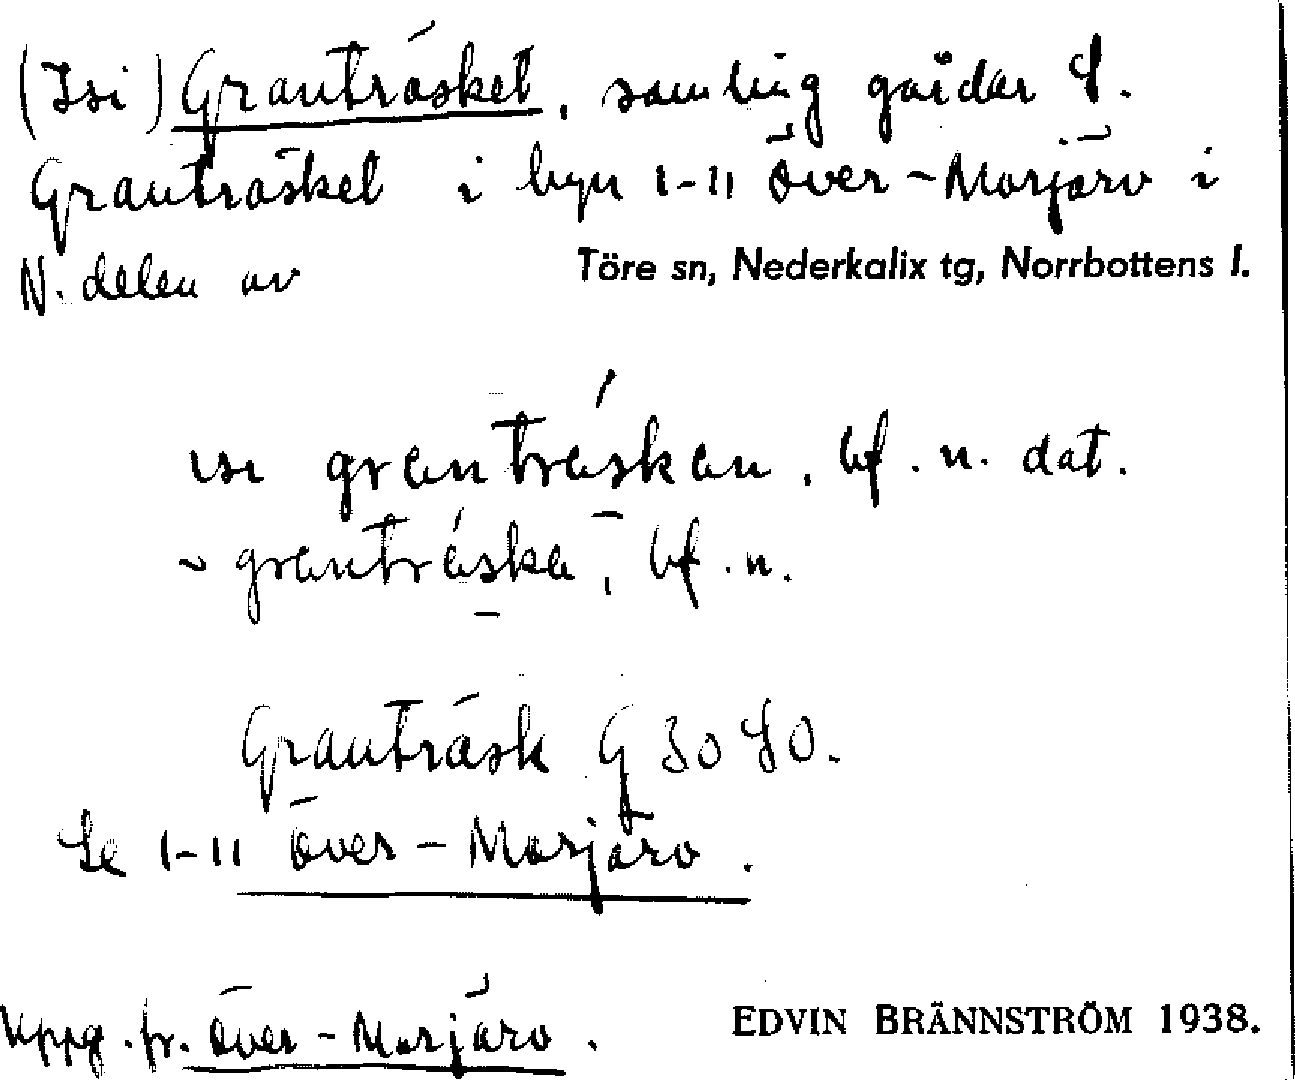 (Isi) Granträsket, samling gårdar S.
Granträsket i byn 1-11 Över-Morjärv i
N. delen av Töre sn, Nederkalix tg, Norrbottens l.
ısı granträskan, bf. n. dat.
~ granträska, bf. n.
Granträsk G 30 SO.
Se 1-11 Över-Morjärv.
Uppg. fr. Över-Morjärv. EDVIN BRÄNNSTRÖM 1938.